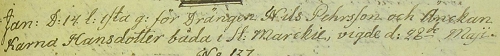 Jan: D. 14. l. ista g: för Drängen Nils Pehrsson och Änckan
Karna Hansdotter båda i St. Marckie, vigde d. 28de Maji
No 137